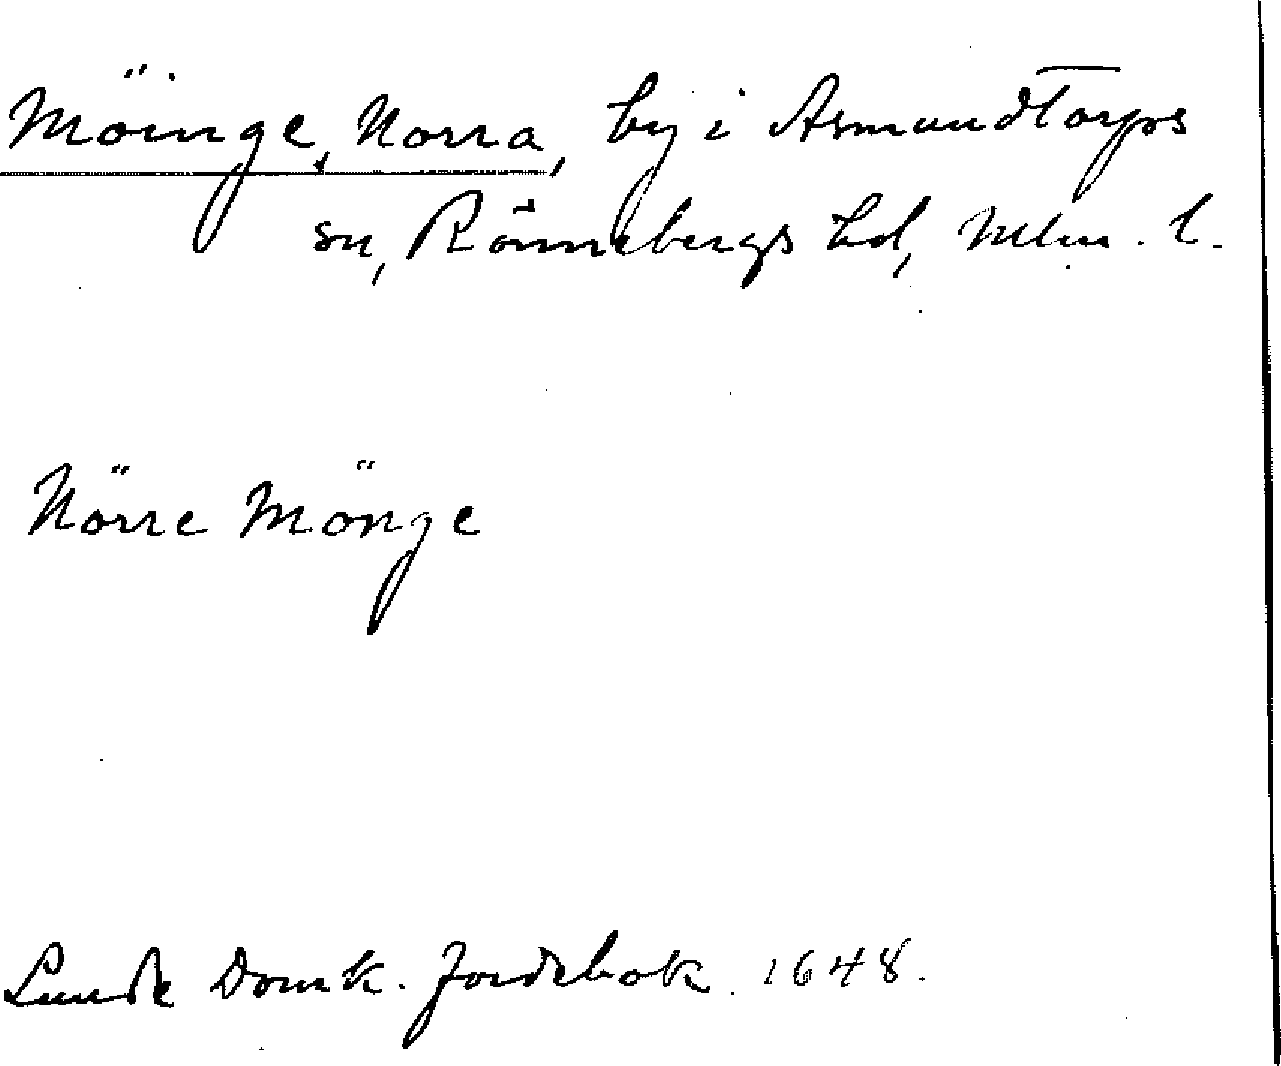 Möinge, Norra, by i Asmundtorps
sn, Rönnebergs hd, Mlm. l.
Nörre Mönge
Lunde Domk. Jordebok. 1648.